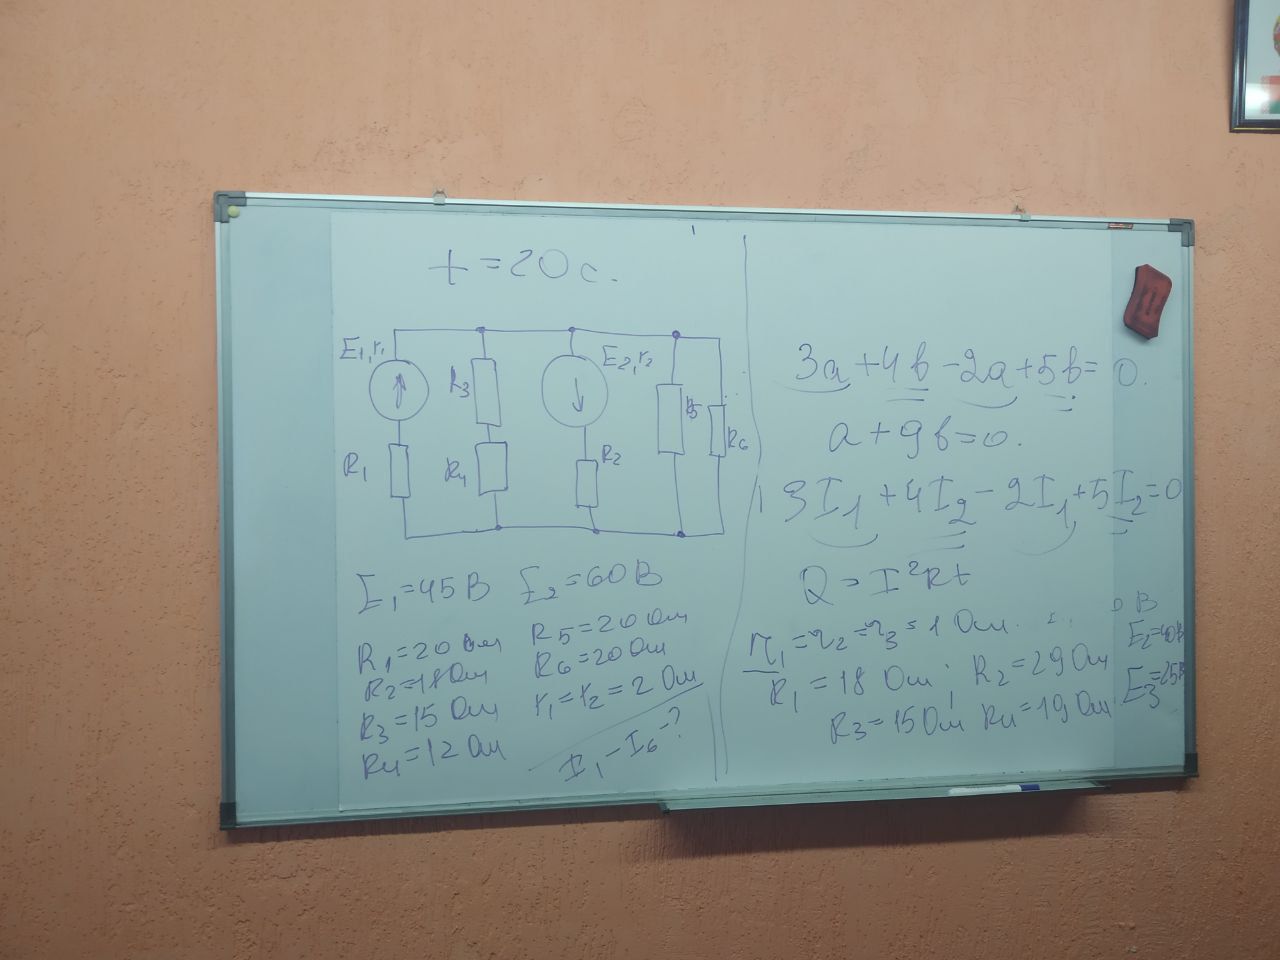 t = 20 с.
E₁, r₁
R₃
E₂, r₂
R₅
R₆
R₁
R₄
R₂
E₁ = 45 В E₂ = 60 В
R₁ = 20 Ом R₅ = 20 Ом
R₂ = 18 Ом R₆ = 20 Ом
R₃ = 15 Ом r₁ = r₂ = 2 Ом
R₄ = 12 Ом I₁ - I₆ - ?
3a + 4b - 2a + 5b = 0.
a + 9b = 0.
3I₁ + 4I₂ - 2I₁ + 5I₂ = 0
Q = I²Rt
r₁ = r₂ = r₃ = 1 Ом. В
E₂ = 40 В
R₁ = 18 Ом; R₂ = 29 Ом E₃ = 25 В
R₃ = 15 Ом R₄ = 19 Ом